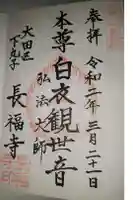 奉拝
令和二年三月二十一日
本尊白衣観世音
弘法大師
大田区
下丸子
長福寺